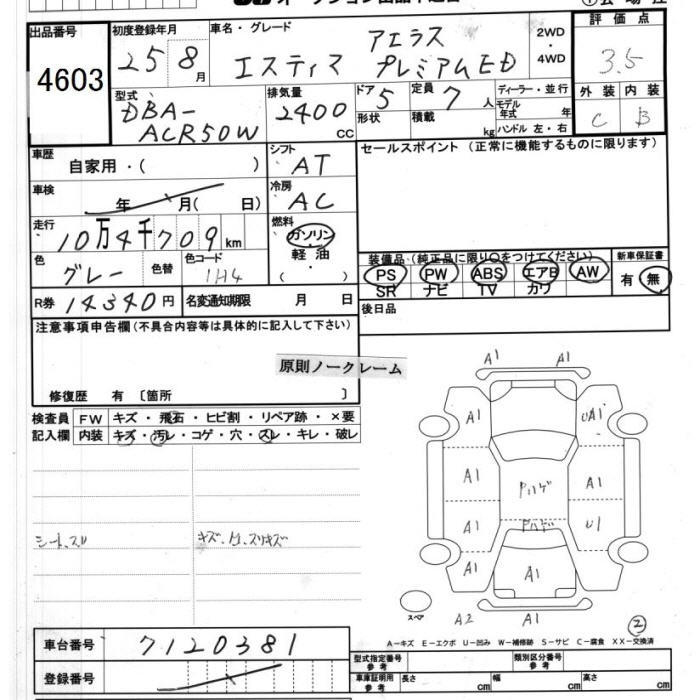 出品番号
4603
初度登録年月
25 8 月
車名・グレード
エスティマ アエラス プレミアムED
2WD
・
4WD
評価点
3.5
外装 内装
C B
型式
DBA-
ACR50W
排気量
2400
CC
ドア 5
形状
定員 7 人
積載 kg
ディーラー・並行
モデル年式 年
ハンドル 左・右
車歴
自家用・( )
シフト
AT
セールスポイント (正常に機能するものに限ります)
車検
年 月( 日)
冷房
AC
走行
10万4千709 km
燃料
ガソリン
軽油
( )
色
グレー
色替
色コード
1H4
装備品 (純正品に限り○をつけてください)
PS PW ABS エアB AW
SR ナビ TV カワ
新車保証書
有・無
R券 14340円
名変通知期限 月 日
後日品
注意事項申告欄 (不具合内容等は具体的に記入して下さい)
原則ノークレーム
修復歴 有 〔箇所 〕
検査員 FW キズ・飛石・ヒビ割・リペア跡・×要
記入欄 内装 キズ・汚レ・コゲ・穴・スレ・キレ・破レ
A1 A1
A1 UA1
A1 A1
A1 U1
A1 A1 A1
スペア
A2 A1
②
A-キズ E-エクボ U-凹み W-補修跡 S-サビ C-腐食 XX-交換済
車台番号 7120381
登録番号
型式指定番号 参考
類別区分番号 参考
車庫証明用 参考
長さ cm
幅 cm
高さ cm